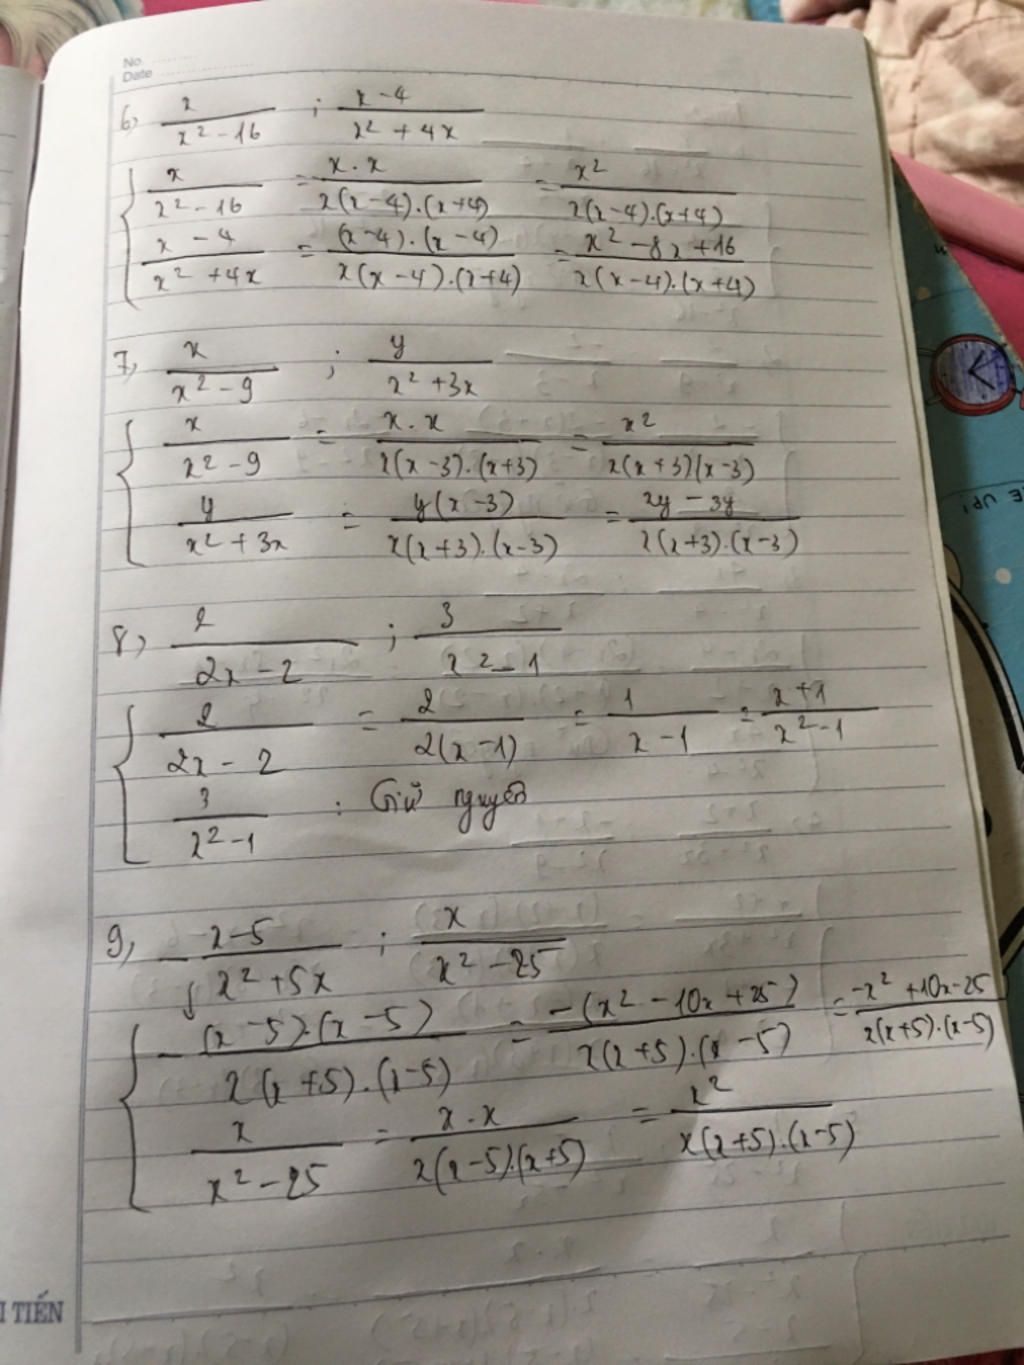 No.
Date
6) x/(x² - 16) ; (x - 4)/(x² + 4x)
x/(x² - 16) = x . x/(x(x - 4).(x + 4)) = x²/(x(x - 4).(x + 4))
(x - 4)/(x² + 4x) = (x - 4).(x - 4)/(x(x - 4).(x + 4)) = (x² - 8x + 16)/(x(x - 4).(x + 4))
7, x/(x² - 9) ; y/(x² + 3x)
x/(x² - 9) = x . x/(x(x - 3).(x + 3)) = x²/(x(x + 3)(x - 3))
y/(x² + 3x) = y(x - 3)/(x(x + 3).(x - 3)) = (xy - 3y)/(x(x + 3).(x - 3))
8, 2/(2x - 2) ; 3/(x² - 1)
2/(2x - 2) = 2/(2(x - 1)) = 1/(x - 1) = (x + 1)/(x² - 1)
3/(x² - 1) : Giữ nguyên
9, - (x - 5)/(x² + 5x) ; x/(x² - 25)
- (x - 5).(x - 5)/(x(x + 5).(x - 5)) = -(x² - 10x + 25)/(x(x + 5).(x - 5)) = (-x² + 10x - 25)/(x(x + 5).(x - 5))
x/(x² - 25) = x . x/(x(x - 5).(x + 5)) = x²/(x(x + 5).(x - 5))
TIẾN